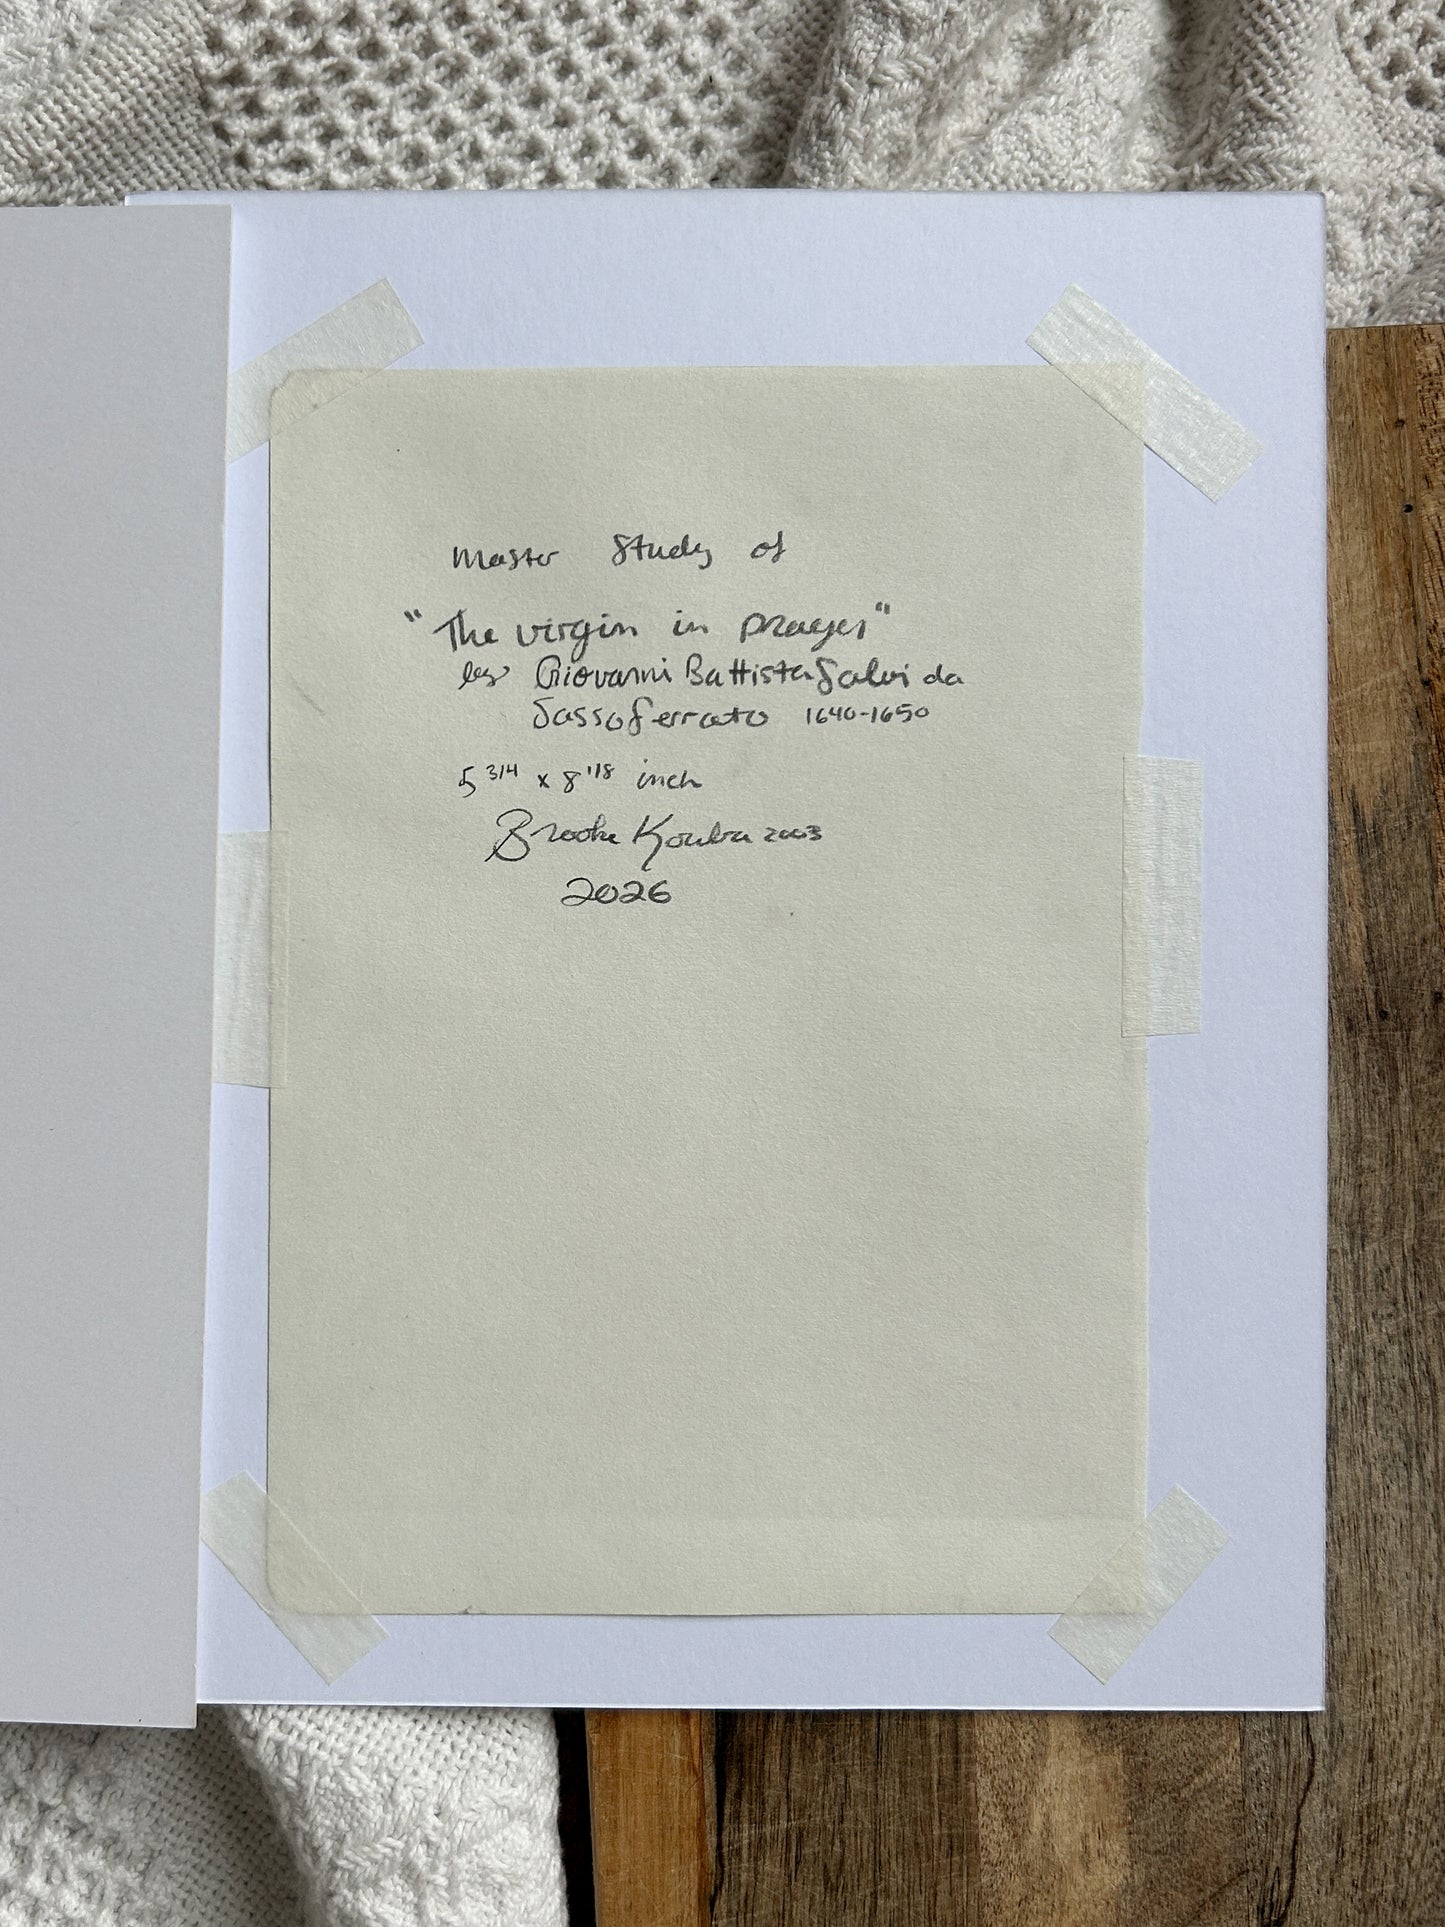 Master Study of
"The virgin in prayer"
by Giovanni Battista Salvi da
Sassoferrato 1640-1650
5 3/4 x 8 1/8 inch
Brooke Kouba 2003
2026